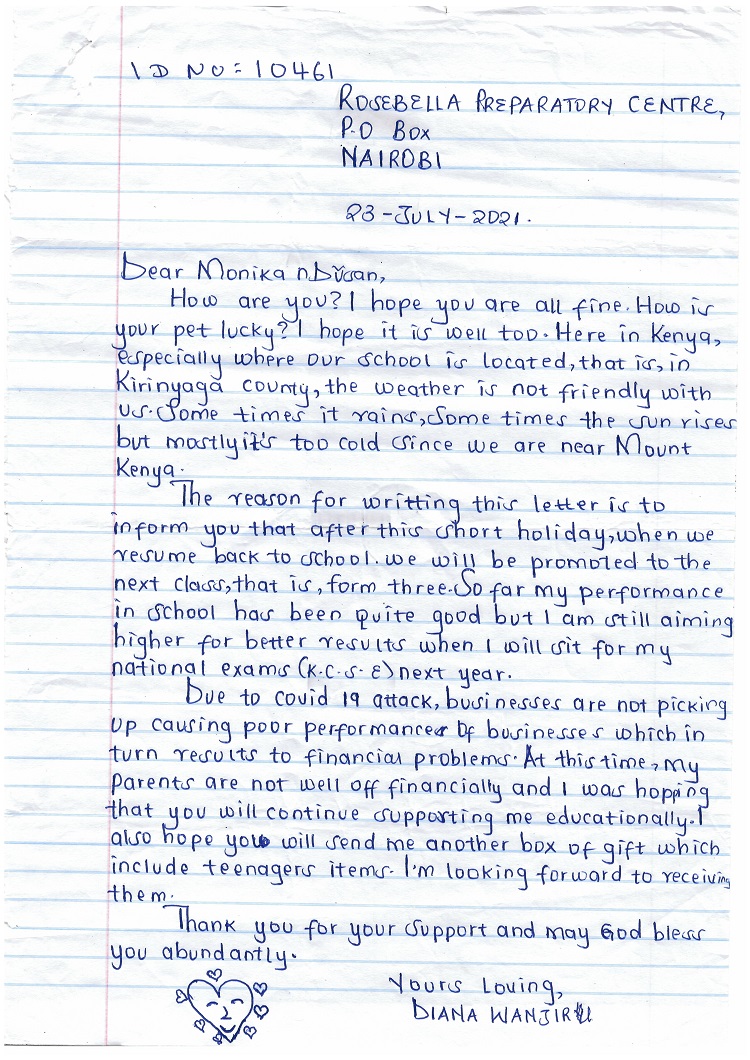 ID NO = 10461
ROSEBELLA PREPARATORY CENTRE,
P.O BOX
NAIROBI
23-JULY-2021.
Dear Monika n Dŭsan,
How are you? I hope you are all fine. How is
your pet lucky? I hope it is well too. Here in Kenya,
especially where our school is located, that is, in
Kirinyaga county, the weather is not friendly with
us. Some times it rains, Some times the sun rises
but mostly it's too cold since we are near Mount
Kenya.
The reason for writting this letter is to
inform you that after this short holiday, when we
resume back to school. we will be promoted to the
next class, that is, form three. So far my performance
in school has been quite good but I am still aiming
higher for better results when I will sit for my
national exams (K.C.S.E) next year.
Due to covid 19 attack, businesses are not picking
up causing poor performances of businesses which in
turn results to financial problems. At this time, my
parents are not well off financially and I was hopping
that you will continue supporting me educationally. I
also hope you will send me another box of gift which
include teenagers items. I'm looking forward to receiving
them.
Thank you for your support and may God bless
you abundantly.
Yours Loving,
DIANA WANJIRU